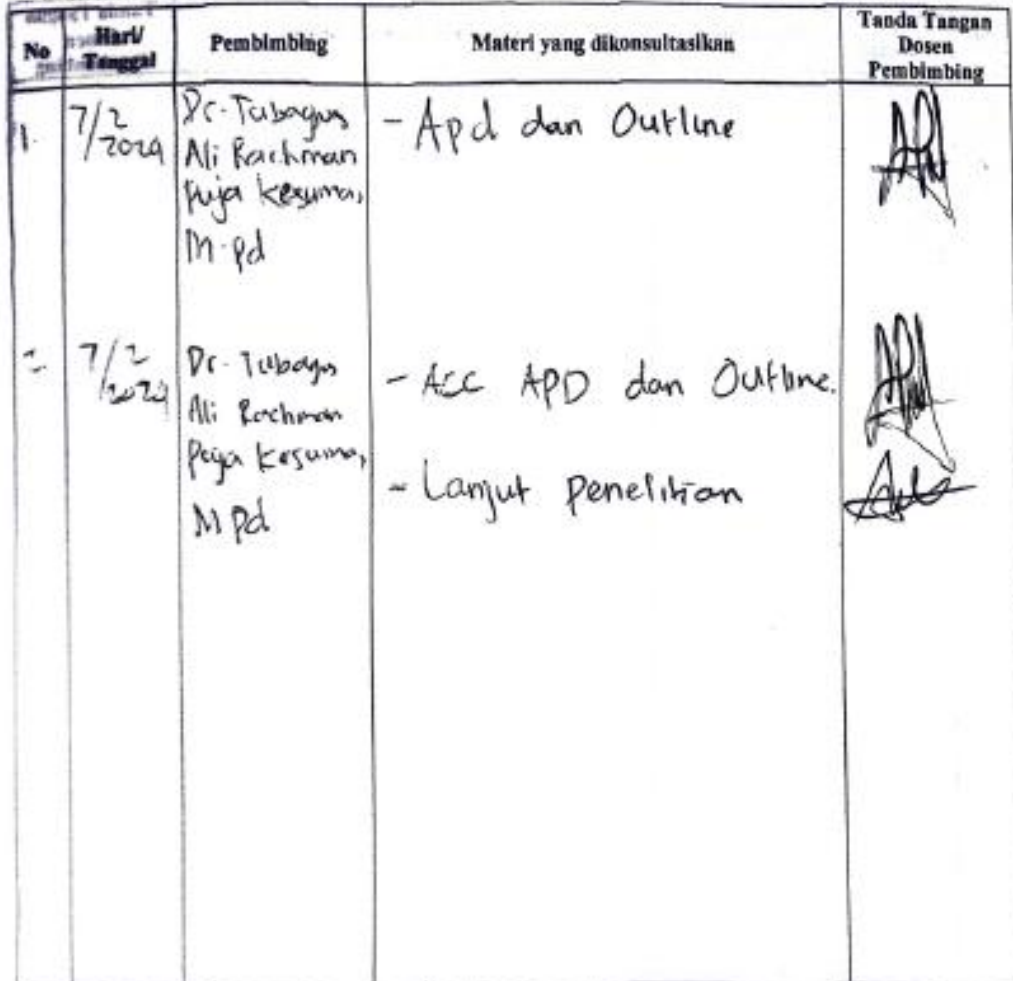 No
Hari/
Tanggal
Pembimbing
Materi yang dikonsultasikan
Tanda Tangan
Dosen
Pembimbing
1.
7/2
2024
Dr. Tubagus
Ali Rachman
Puja Kesuma,
M.pd
- Apd dan Outline
2
7/2
2024
Dr. Tubagus
Ali Rachman
Puja Kesuma,
M Pd
- Acc APD dan Outline.
- Lanjut penelitian